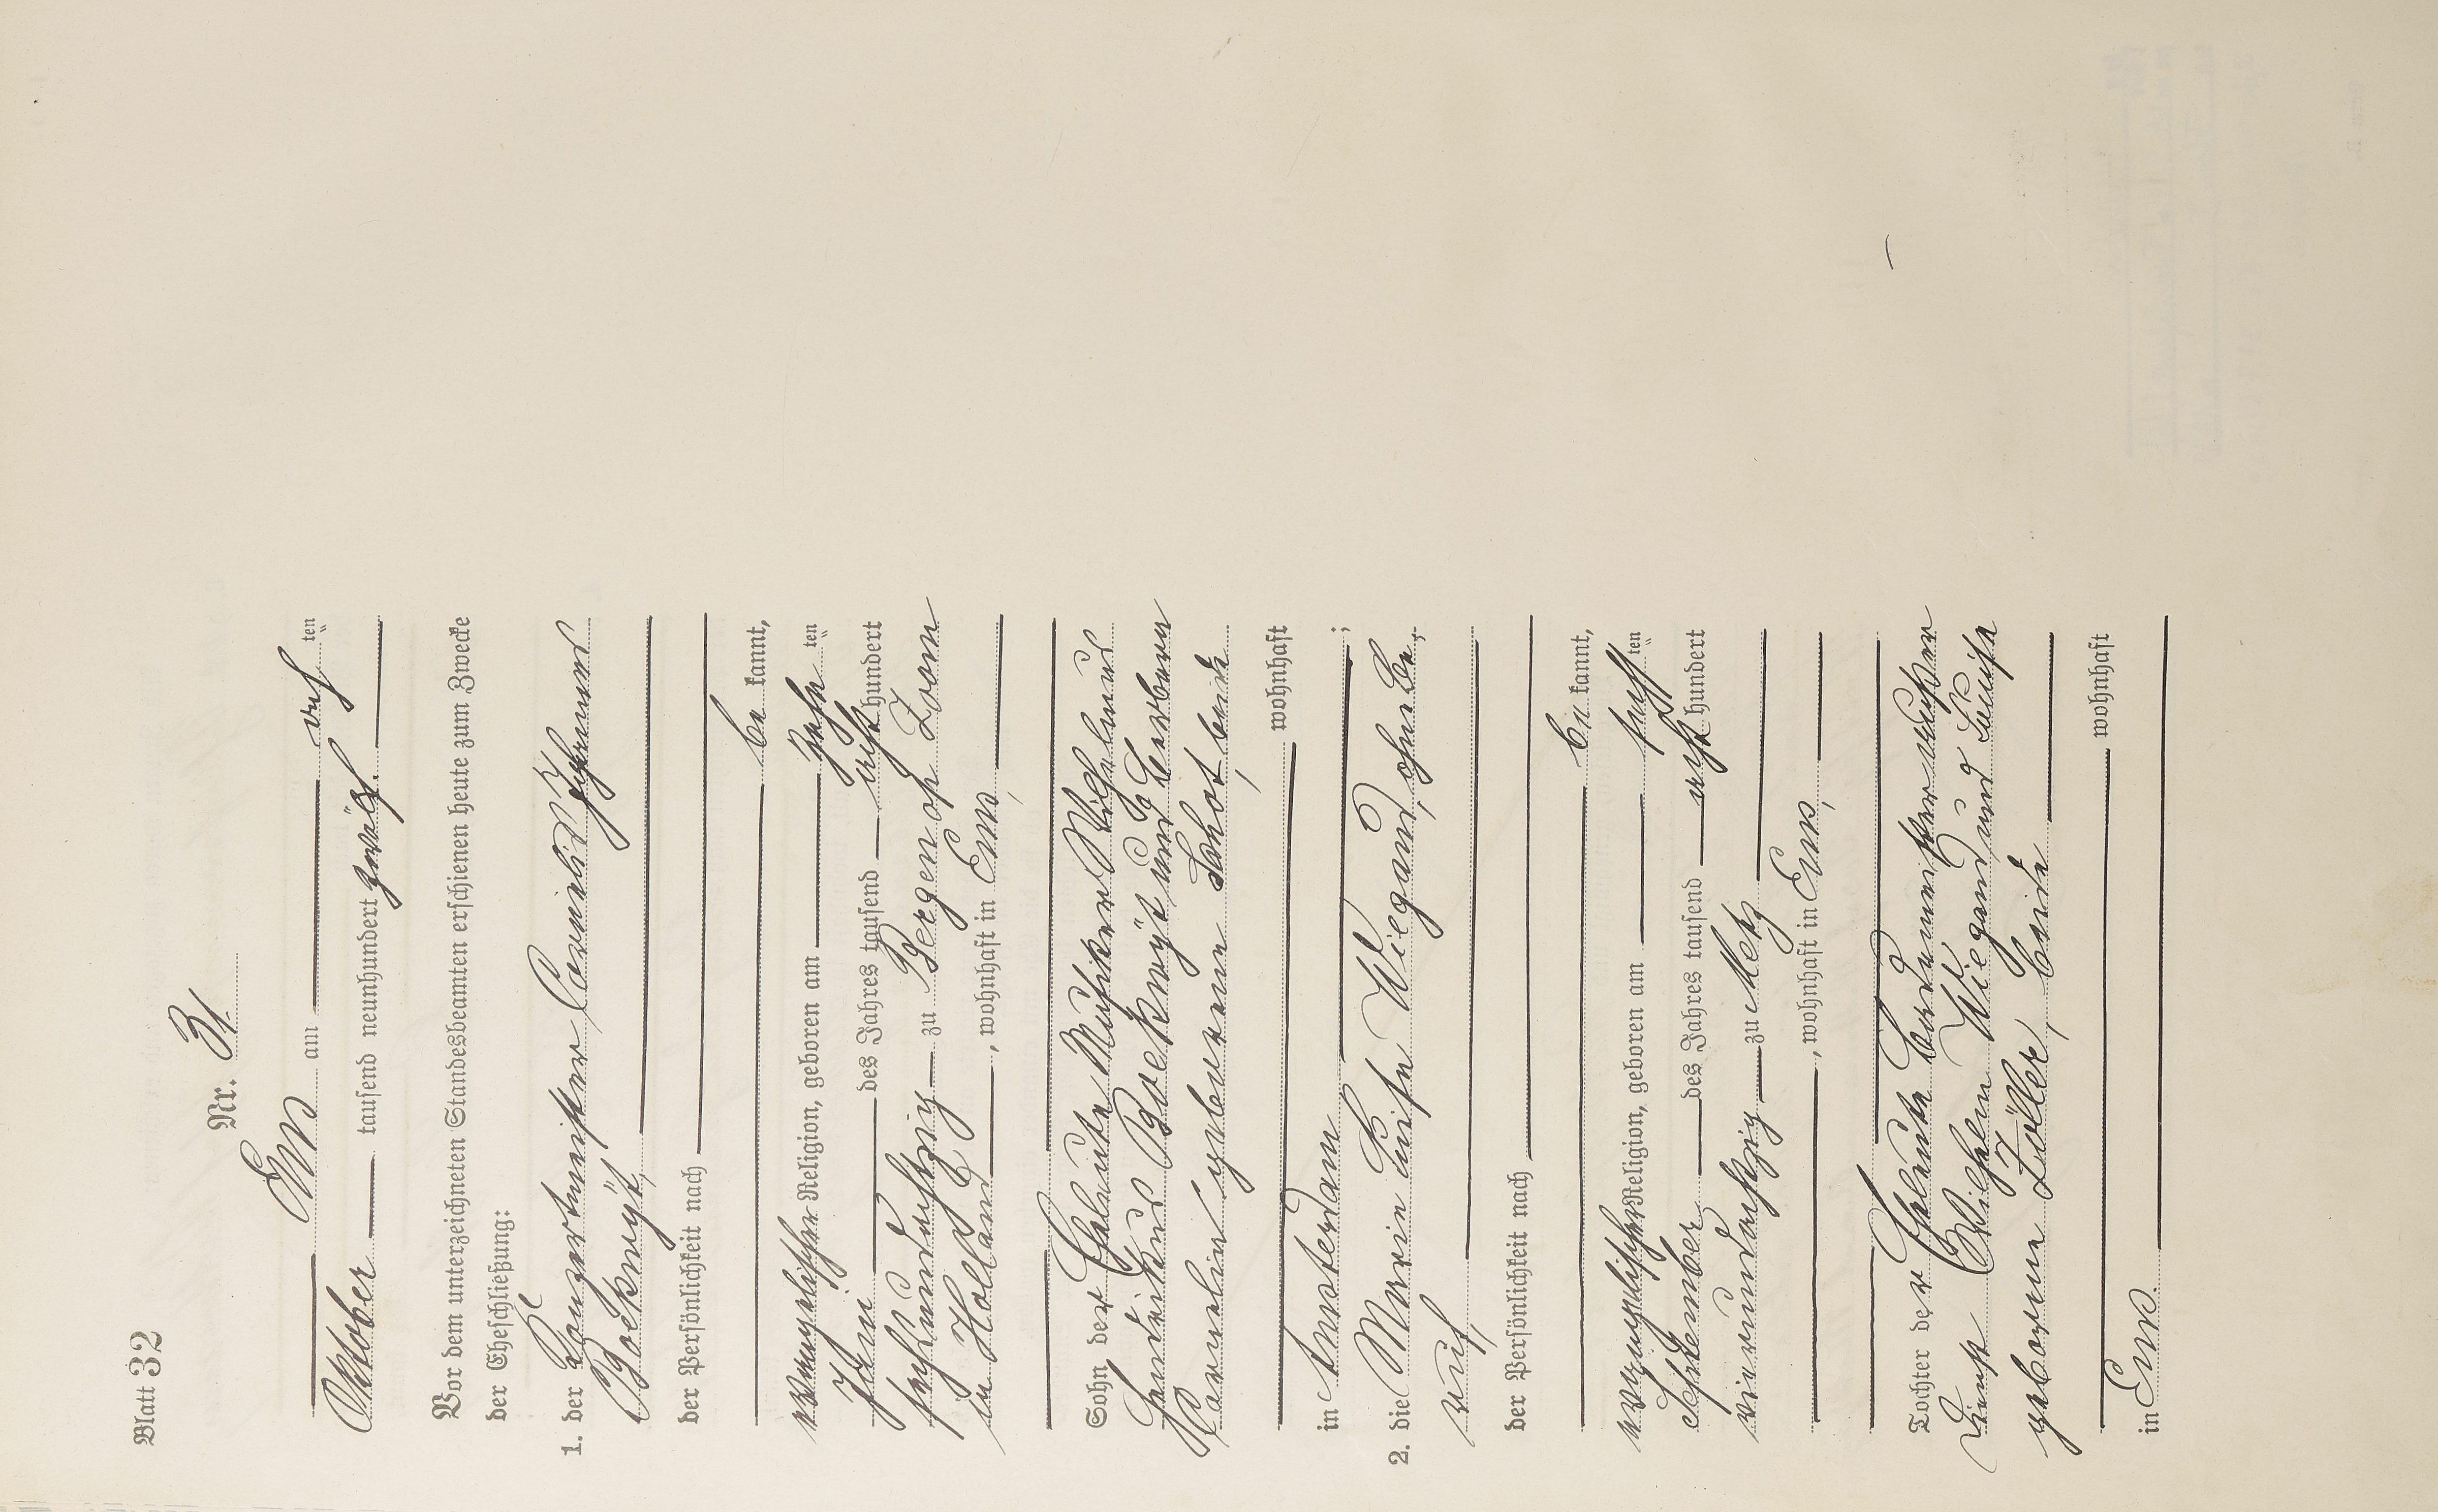 Blatt 32
Nr. 31.
Ems am acht ten
Oktober tausend neunhundert zwölf.
Vor dem unterzeichneten Standesbeamten erschienen heute zum Zwecke
der Eheschließung:
1. der Konzertmeister Cornelis Johannes
Boeknuyt,
der Persönlichkeit nach
be kannt,
evangelischer Religion, geboren am zehn ten
Juni des Jahres tausend acht hundert
sechsundachtzig zu Bergen op Zoom
in Holland, wohnhaft in Ems,
Sohn der Eheleute Musiker Wilhelmus
Hendrikus Boeknuyt und Barbara
Karoline geborenen Schot, beide
wohnhaft
in Amsterdam ;
2. die Marie Luise Wiegand, ohne Be-
ruf,
der Persönlichkeit nach
be kannt,
evangelischer Religion, geboren am ten
September des Jahres tausend acht hundert
vierundachtzig zu Metz
, wohnhaft in Ems,
Tochter der Eheleute Bademeister
Ernst Wilhelm Wiegand und Luise
geborene Zöller, beide
wohnhaft
in Ems.